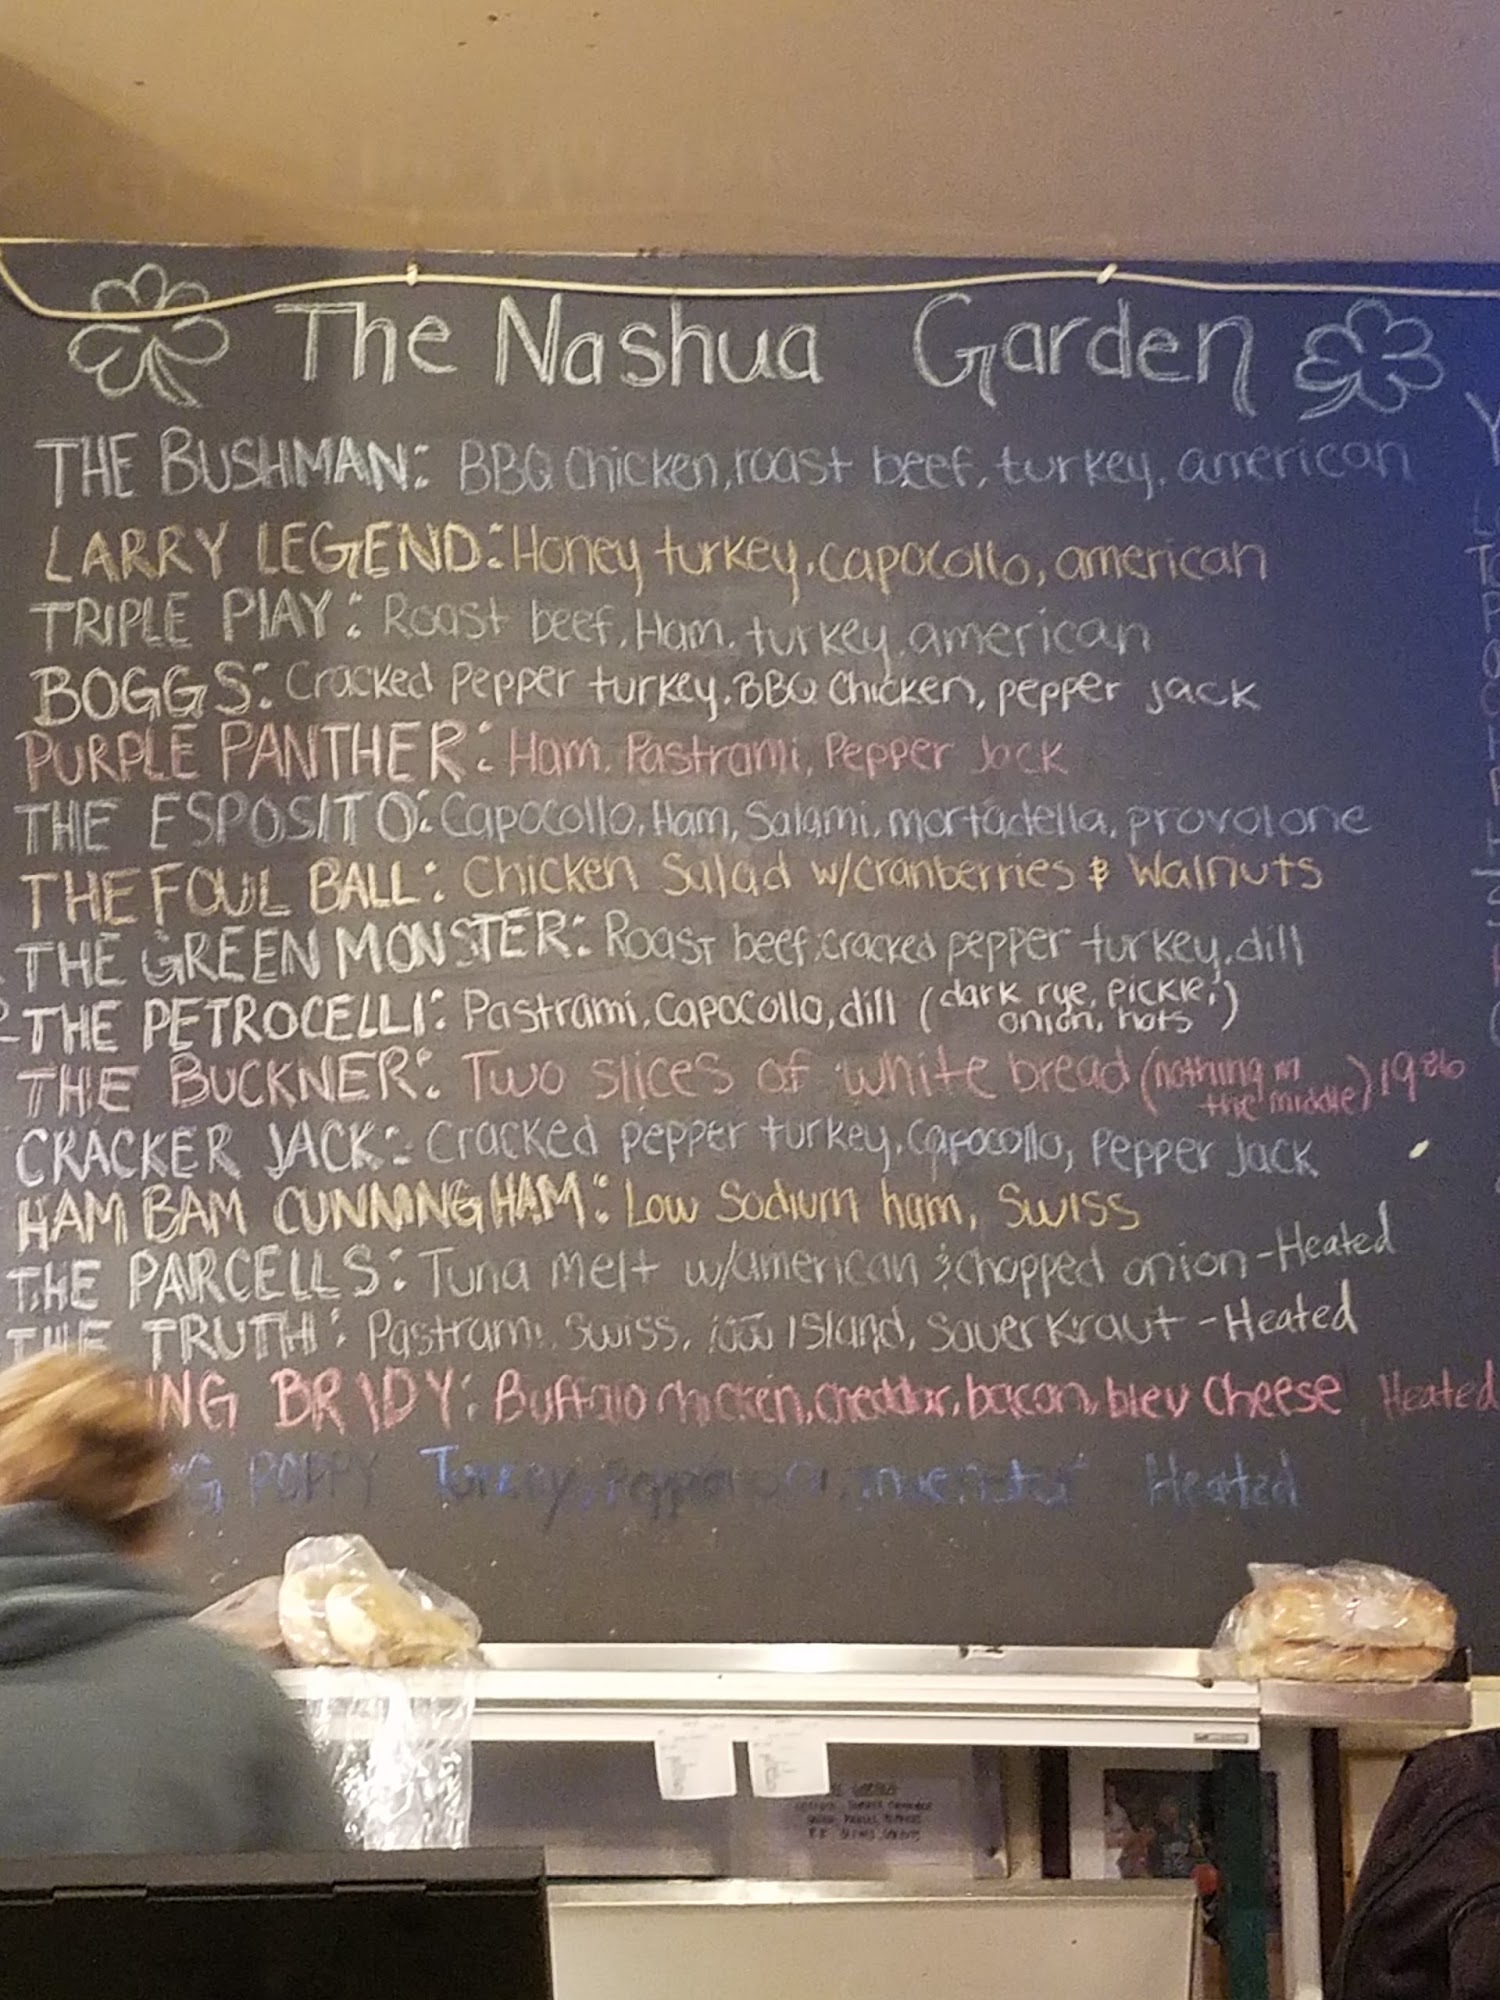 The Nashua Garden
THE BUSHMAN: BBQ Chicken, roast beef, turkey, american
LARRY LEGEND: Honey turkey, capocollo, american
TRIPLE PLAY: Roast beef, Ham, turkey, american
BOGGS: Cracked Pepper turkey, BBQ Chicken, pepper jack
PURPLE PANTHER: Ham, Pastrami, Pepper Jack
THE ESPOSITO: Capocollo, Ham, Salami, mortadella, provolone
THE FOUL BALL: Chicken Salad w/cranberries & Walnuts
THE GREEN MONSTER: Roast beef, cracked pepper turkey, dill
THE PETROCELLI: Pastrami, capocollo, dill (dark rye, pickle, onion, hots)
THE BUCKNER: Two slices of white bread (nothing in the middle) 1986
CRACKER JACK: Cracked pepper turkey, capocollo, Pepper Jack
HAM BAM CUNNINGHAM: Low Sodium ham, Swiss
THE PARCELLS: Tuna melt w/american & chopped onion - Heated
THE TRUTH: Pastrami, Swiss, 1000 Island, Sauerkraut - Heated
NG BRADY: Buffalo chicken, cheddar, bacon, bleu Cheese Heated
G POPPY Turkey, Heated